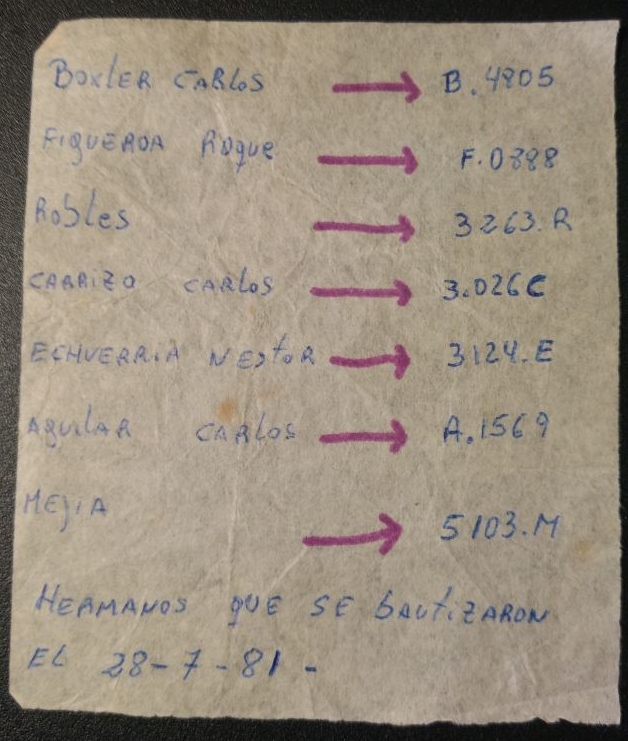 BOXLER CARLOS → B.4805
FIGUEROA ROQUE → F.0888
ROBLES → 3263.R
CARRIZO CARLOS → 3.026C
ECHVERRIA NESTOR → 3124.E
AGUILAR CARLOS → A.1569
MEJIA → 5103.M
HERMANOS QUE SE BAUTIZARON
EL 28-7-81-